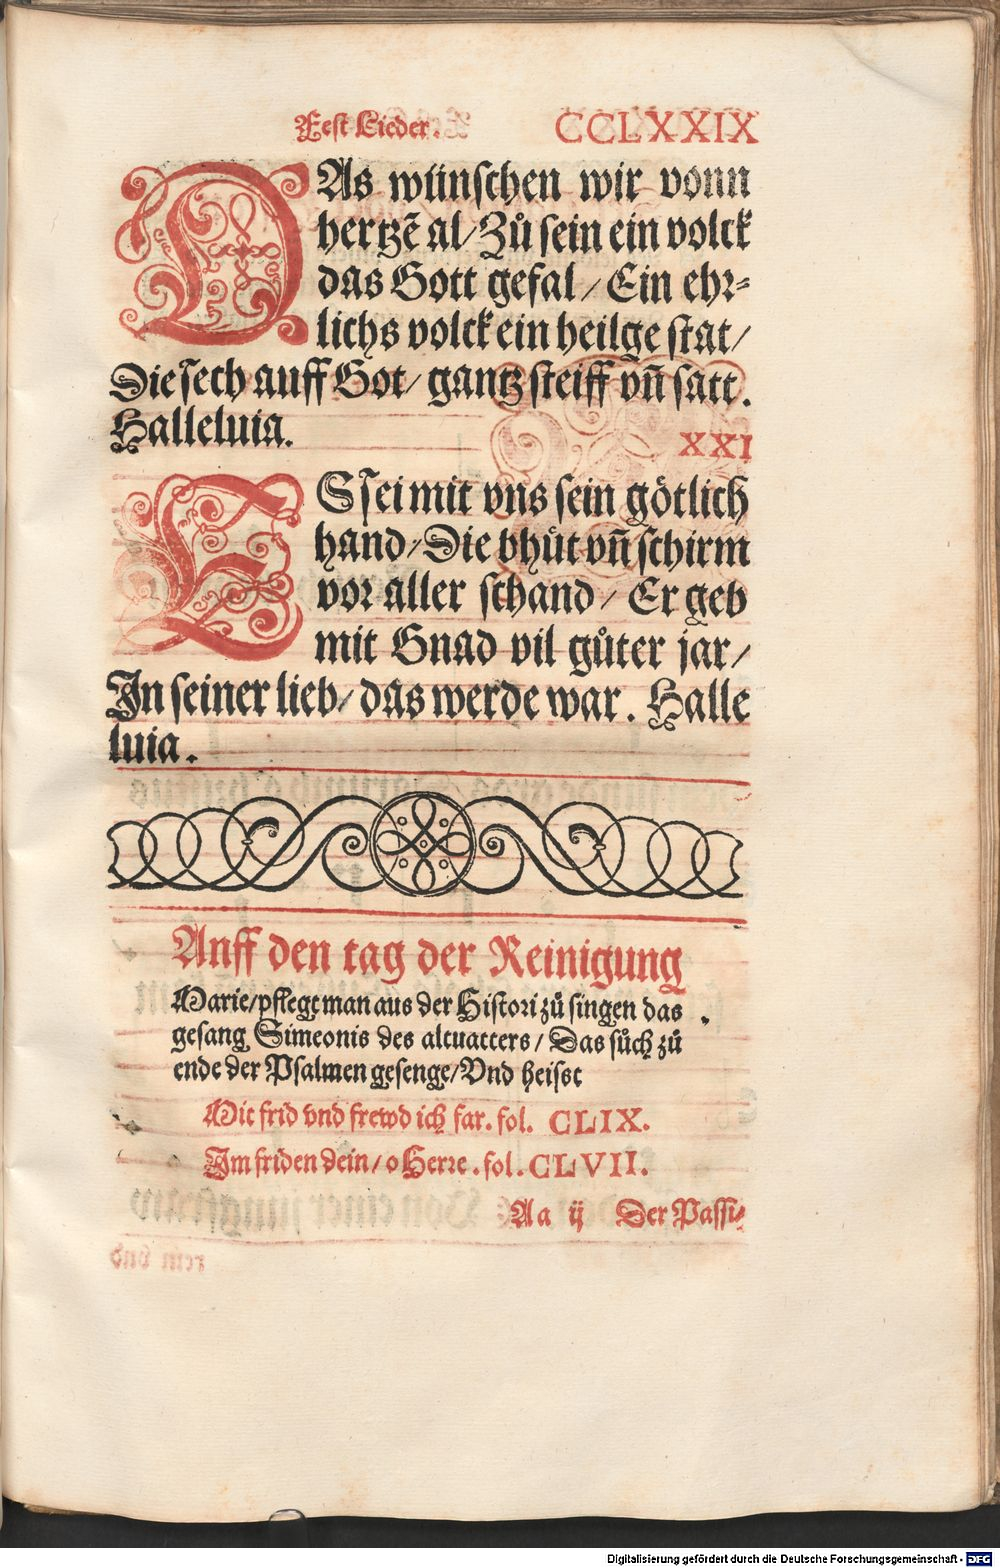 Fest Lieder. CCLXXIX
DAs wünschen wir vonn
hertzẽ al/Zů sein ein volck
das Gott gefal/Ein ehr⸗
lichs volck ein heilge stat/
Die sech auff Got/gantz steiff vñ satt.
Halleluia.
XXI
ES sei mit vns sein götlich
hand/Die bhůt vñ schirm
vor aller schand/Er geb
mit Gnad vil gůter jar/
In seiner lieb/das werde war. Halle
luia.
Auff den tag der Reinigung
Marie/pflegt man aus der Histori zů singen das
gesang Simeonis des altuatters/Das sůch zů
ende der Psalmen gesenge/Vnd heisst
Mit frid vnd frewd ich far. fol. CLIX.
Im friden dein/o Herre. fol. CLVII.
Aa ij Der Passi⸗
Digitalisierung gefördert durch die Deutsche Forschungsgemeinschaft - DFG